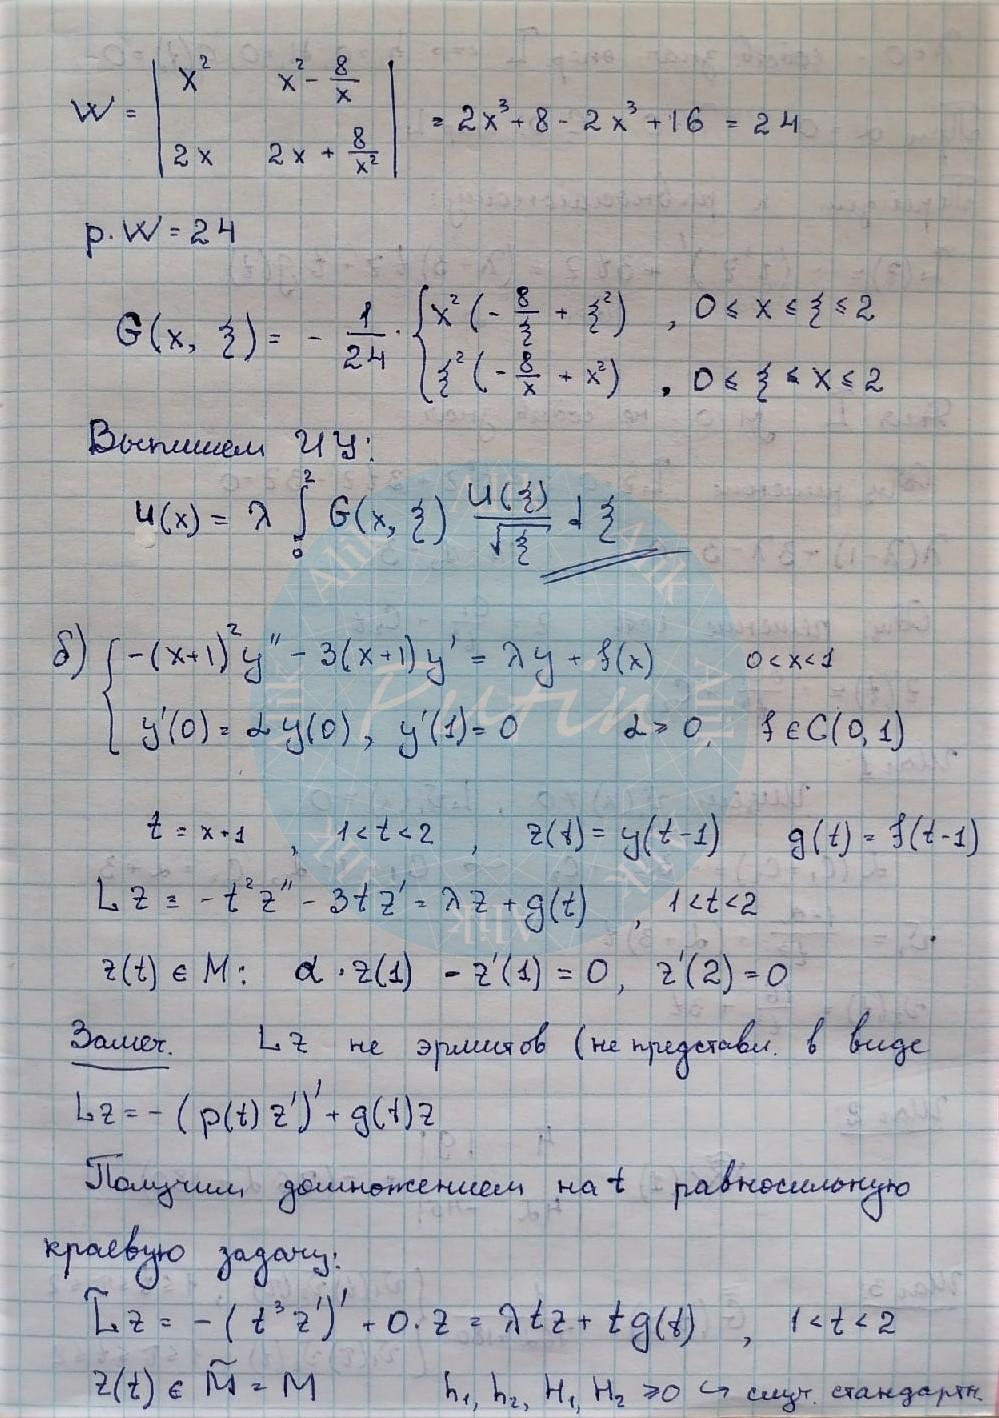 W = | x²   x² - 8/x |
| 2x   2x + 8/x² | = 2x³ + 8 - 2x³ + 16 = 24
p·W = 24
G(x, ξ) = - 1/24 · { x² (- 8/ξ + ξ²) , 0 ≤ x ≤ ξ ≤ 2
ξ² (- 8/x + x²) , 0 ≤ ξ ≤ x ≤ 2
Выпишем ИУ:
u(x) = λ ∫₀² G(x, ξ) u(ξ)/√ξ dξ
б) { -(x+1)² y'' - 3(x+1) y' = λy + f(x)   0 < x < 1
y'(0) = αy(0), y'(1) = 0   α ≥ 0, f ∈ C(0, 1)
t = x+1 , 1 < t < 2 , z(t) = y(t-1)   g(t) = f(t-1)
Lz = -t² z'' - 3t z' = λz + g(t) , 1 < t < 2
z(t) ∈ M: α · z(1) - z'(1) = 0, z'(2) = 0
Замеч. Lz не эрмитов (не представл. в виде
Lz = - (p(t) z')' + g(t)z
Получим домножением на t равносильную
краевую задачу:
L̃z = -(t³ z')' + 0·z = λtz + tg(t) , 1 < t < 2
z(t) ∈ M̃ = M   h₁, h₂, H₁, H₂ ≥ 0 ↪ случ. стандартн.
Alik
Alik
Alik
Alik
Alik
Alik
Alik
Alik
Putin